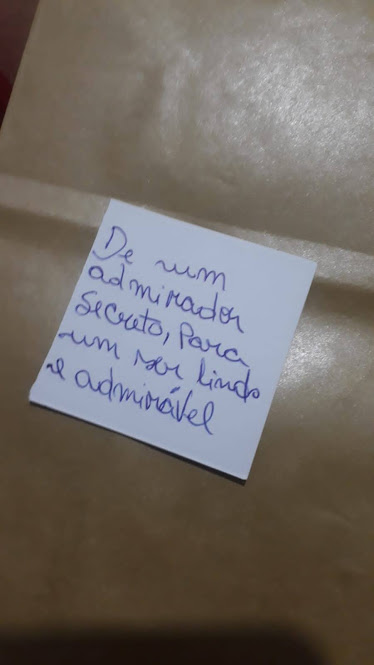 De um
admirador
Secreto, Para
um ser lindo
e admirável